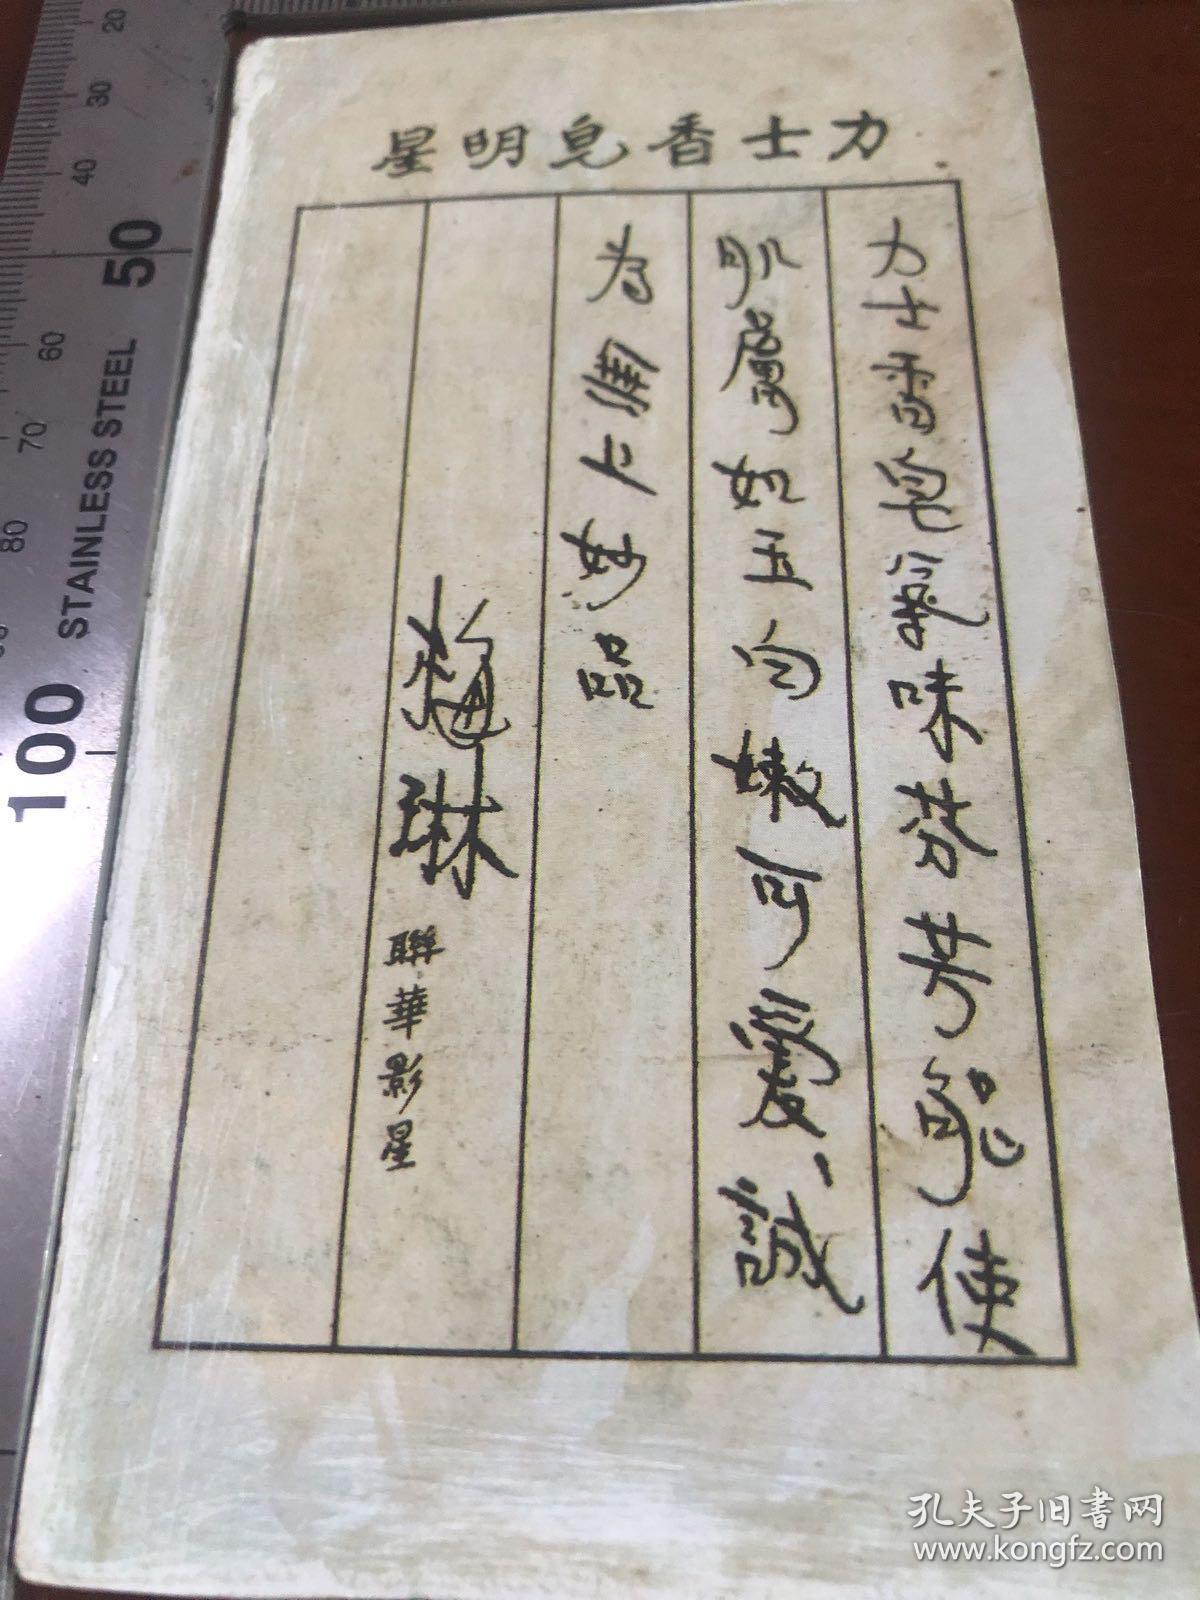 力士香皂明星
力士香皂氣味芬芳能使
肌膚如玉白嫩可愛、誠
為妙品
梅琳 聯華影星
20 30 40 50 60 70 80 100
STAINLESS STEEL
孔夫子旧书网
www.kongfz.com